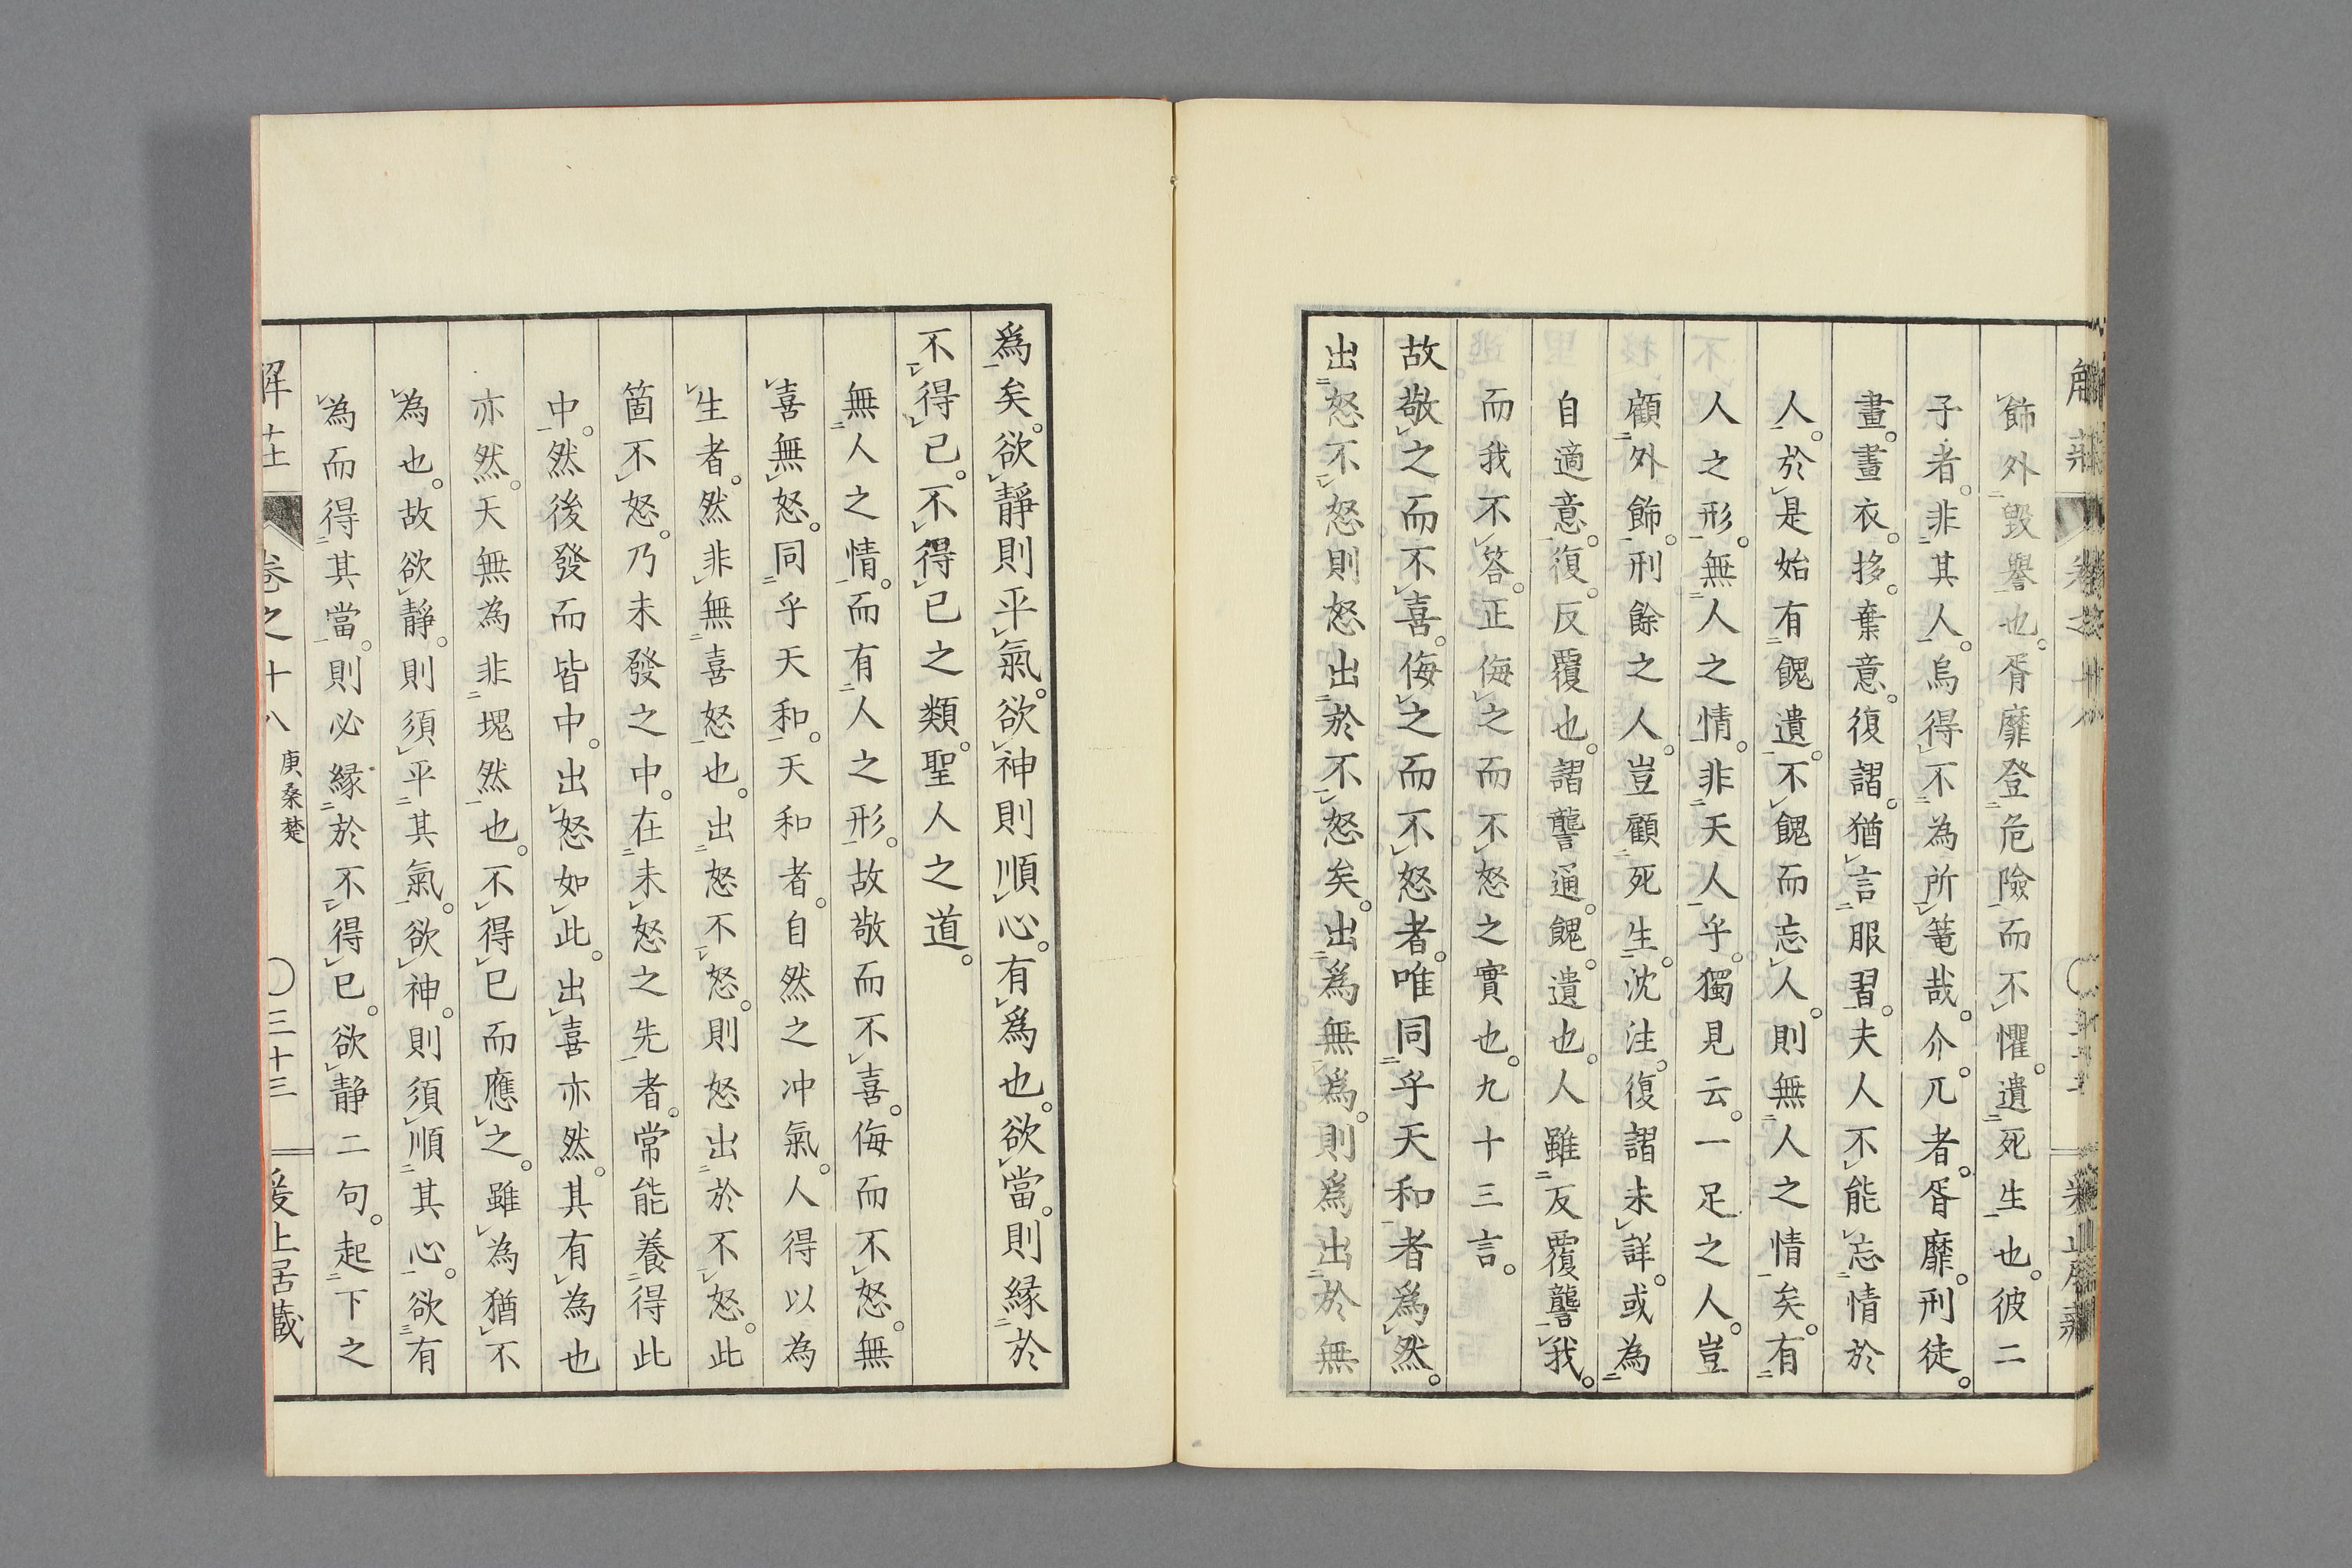 飾外毀譽也。胥靡登危險而不懼。遺死生也。彼二
子者。非其人。烏得不為所篭哉。介。兀者。胥靡。刑徒。
畫。畫衣。拸。棄意。復謵。猶言服習。夫人不能忘情於
人。於是始有餽遺。不餽而忘人。則無人之情矣。有
人之形。無人之情。非天人乎。獨見云。一足之人。豈
顧外飾。刑餘之人。豈顧死生。沈注。復謵未詳。或為
自適意。復。反覆也。謵讋通。餽。遺也。人雖反覆讋我。
而我不答。正侮之而不怒之實也。九十三言。
故敬之而不喜。侮之而不怒者。唯同乎天和者爲然。
出怒不怒則怒出於不怒矣。出爲無爲。則爲出於無
爲矣。欲靜則平氣。欲神則順心。有爲也。欲當。則緣於
不得已。不得已之類。聖人之道。
無人之情。而有人之形。故敬而不喜。侮而不怒。無
喜無怒。同乎天和。天和者。自然之冲氣。人得以為
生者。然非無喜怒也。出怒不怒。則怒出於不怒。此
箇不怒。乃未發之中。在未怒之先者。常能養得此
中。然後發而皆中。出怒如此。出喜亦然。其有為也
亦然。天無為非塊然也。不得已而應之。雖為猶不
為也。故欲靜。則須平其氣。欲神。則須順其心。欲有
為而得其當。則必緣於不得已。欲静二句。起下之
解莊 卷之十八 庚桑楚 〇三十三 爰止居藏